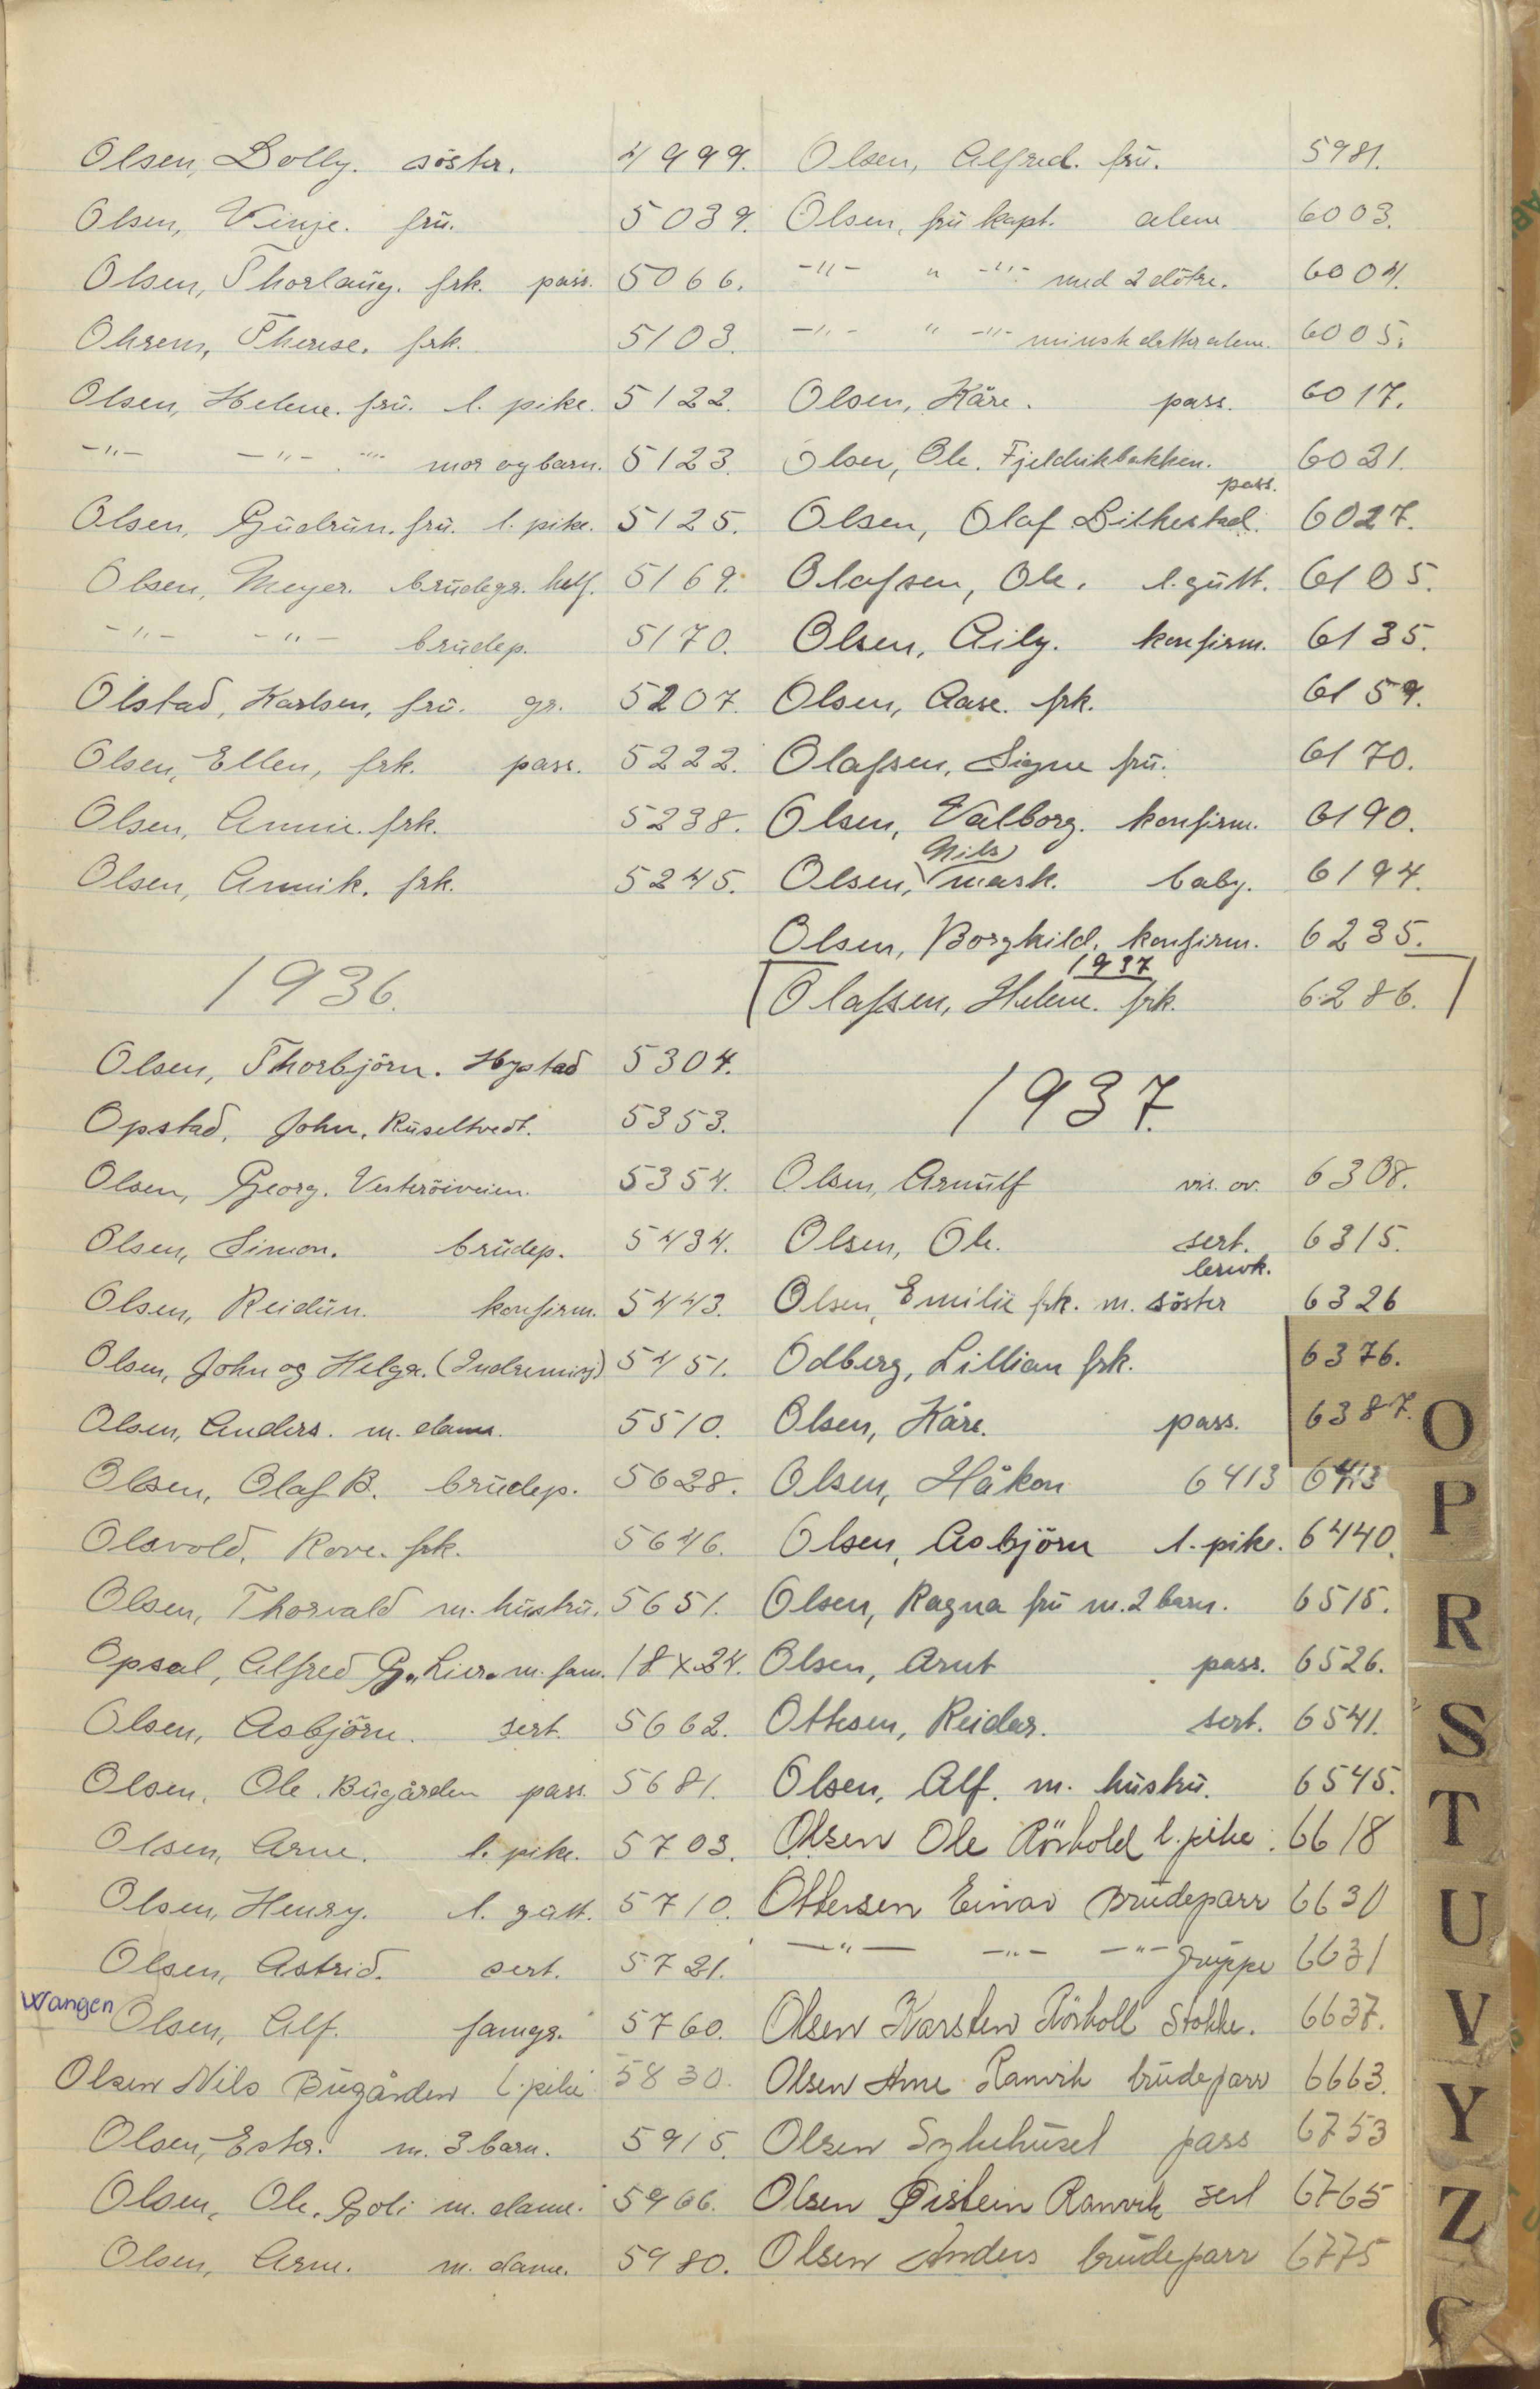 Olsen, Dolly. söster. 4999.
Olsen, Vinje. frü. 5039.
Olsen, Thorlaug. frk. pass. 5066.
Ohrem, Therese. frk. 5103.
Olsen, Helene. frü. l. pike. 5122.
-"- -"- -"- mor og barn. 5123.
Olsen, Güdrün. frü. l. pike. 5125.
Olsen, Meyer. brüdegr. helf. 5169.
-"- -"- brüdep. 5170.
Olstad, Karlsen, frü. gr. 5207.
Olsen, Ellen, frk. pass. 5222.
Olsen, Annie. frk. 5238.
Olsen, Annik. frk. 5245.
1936.
Olsen, Thorbjörn. Hystad 5304.
Opstad, John. Rüseltvedt. 5353.
Olsen, Georg. Vesteröiveien. 5354.
Olsen, Simon. brüdep. 5434.
Olsen, Reidün. konfirm. 5443.
Olsen, John og Helga. (Indremisj) 5451.
Olsen, Anders. m. dame. 5510.
Olsen, Olaf B. brüdep. 5628.
Olsvold, Rove. frk. 5646.
Olsen, Thorvald m. hüstrü. 5651.
Opsal, Alfred G. "Lier" m. fam. 18 x 24.
Olsen, Asbjörn. sert. 5662.
Olsen, Ole. Bügården pass. 5681.
Olsen, Arne. l. pike. 5703.
Olsen, Henry. l. gütt. 5710.
Olsen, Astrid. sert. 5721.
Wangen
Olsen, Alf. famgr. 5760.
Olsen Nils Bügården l. pike 5830.
Olsen, Ester. m. 3 barn. 5915.
Olsen, Ole. Goli m. dame. 5966.
Olsen, Arne. m. dame. 5980.
Olsen, Alfred. frü. 5981.
Olsen, frü kapt. alene 6003.
-"- " -"- med 2 dötre. 6004.
-"- " -"- minste datter alene. 6005.
Olsen, Kåre. pass. 6017.
Olsen, Ole. Fjeldvikbakken. 6021.
pass.
Olsen, Olaf Bilkestad. 6027.
Olafsen, Ole. l. gütt. 6105.
Olsen, Aily. konfirm. 6135.
Olsen, Aase. frk. 6159.
Olafsen, Signe frü. 6170.
Olsen, Valborg. konfirm. 6190.
Nils
Olsen, mask. baby. 6194.
Olsen, Borghild. konfirm. 6235.
1937
Olafsen, Helene. frk. 6286.
1937.
Olsen, Arnülf vis. ov. 6308.
Olsen, Ole. sert. 6315.
Olsen, Emilie frk. m. söster 6326
Odberg, Lillian frk. 6376.
Olsen, Kåre. pass. 6387.
Olsen, Håkon 6413 6413
Olsen, Asbjörn l. pike. 6440.
Olsen, Ragna frü m. 2 barn. 6515.
Olsen, Arnt pass. 6526.
Ottesen, Reidar. sert. 6541.
Olsen, Alf. m. hüstrü. 6545.
Olsen Ole Rörkold l. pike. 6618
Ottersen Einar Brüdeparr 6630
-"- -"- -"- grüppe 6631
Olsen Karsten Rörkoll Stokke. 6637.
Olsen Arne Ranvik brüdeparr 6663.
Olsen Sykehüset pass 6753
Olsen Øistein Ranvik sert 6765
Olsen Anders brüdeparr 6775
O
P
R
S
T
U
V
Y
Z